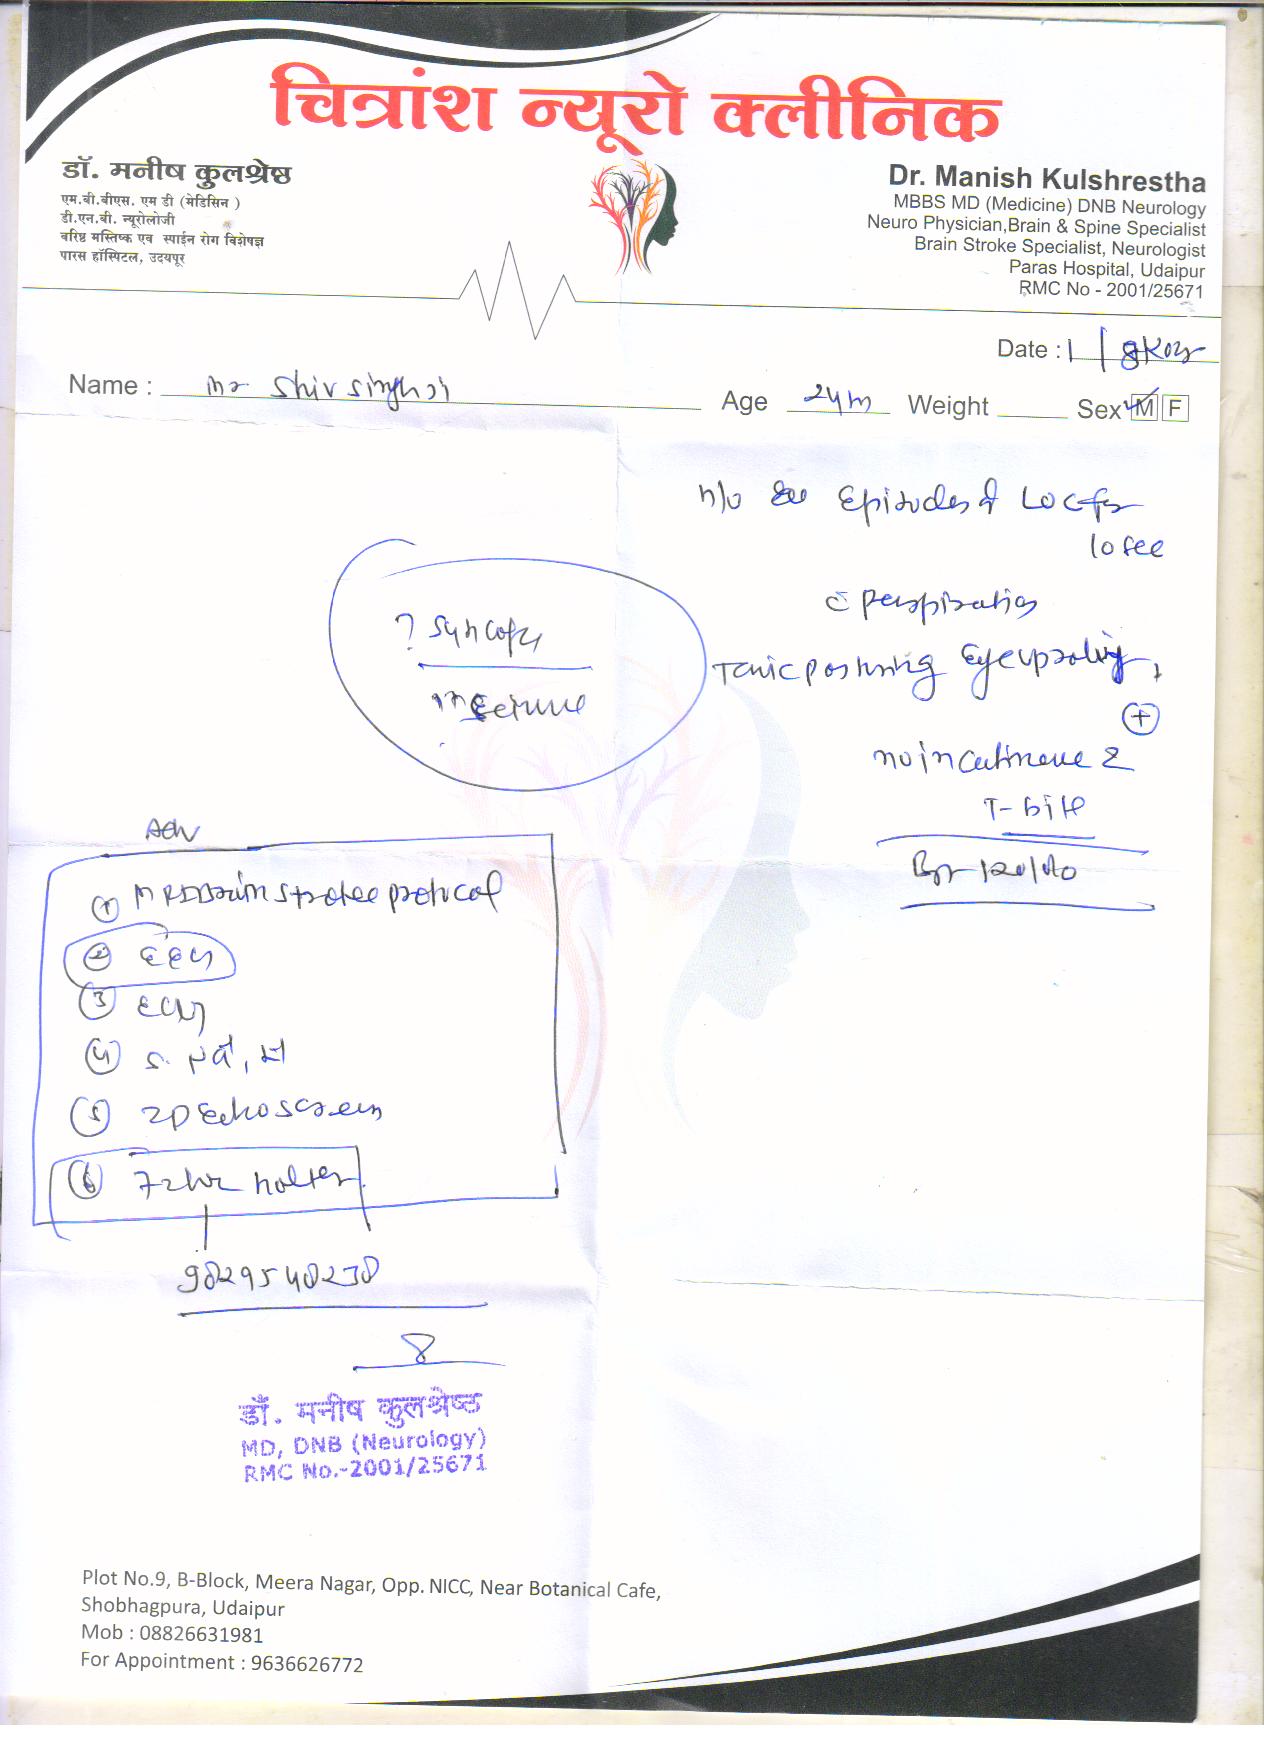 चित्रांश न्यूरो क्लीनिक
डॉ. मनीष कुलश्रेष्ठ
एम.बी.बीएस. एम डी (मेडिसिन )
डी.एन.बी. न्यूरोलोजी
वरिष्ठ मस्तिष्क एव स्पाईन रोग विशेषज्ञ
पारस हॉस्पिटल, उदयपूर
Dr. Manish Kulshrestha
MBBS MD (Medicine) DNB Neurology
Neuro Physician,Brain & Spine Specialist
Brain Stroke Specialist, Neurologist
Paras Hospital, Udaipur
RMC No - 2001/25671
Date :
Name : Mr Shiv Singh Ji
Age 24m Weight Sex M F
H/o Episodes of LOC for
10 sec
c̄ perspiration
Tonic posturing Eye uprolling +
(+)
no incontinence &
T-bite
? Syncope
Seizure
Adv
① MRI Brain Stroke protocol
② EEG
③ ECG
④ S.
⑤ 2D Echo Screen
⑥ 72 hr holter
9829540230
डॉ. मनीष कुलश्रेष्ठ
MD, DNB (Neurology)
RMC No.-2001/25671
Plot No.9, B-Block, Meera Nagar, Opp. NICC, Near Botanical Cafe,
Shobhagpura, Udaipur
Mob : 08826631981
For Appointment : 9636626772